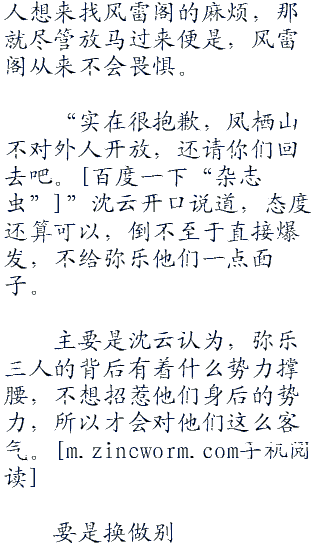 人想来找风雷阁的麻烦，那
就尽管放马过来便是，风雷
阁从来不会畏惧。
“实在很抱歉，凤栖山
不对外人开放，还请你们回
去吧。[百度一下“杂志
虫”]”沈云开口说道，态度
还算可以，倒不至于直接爆
发，不给弥乐他们一点面
子。
主要是沈云认为，弥乐
三人的背后有着什么势力撑
腰，不想招惹他们身后的势
力，所以才会对他们这么客
气。[m.zincworm.com手机阅
读]
要是换做别